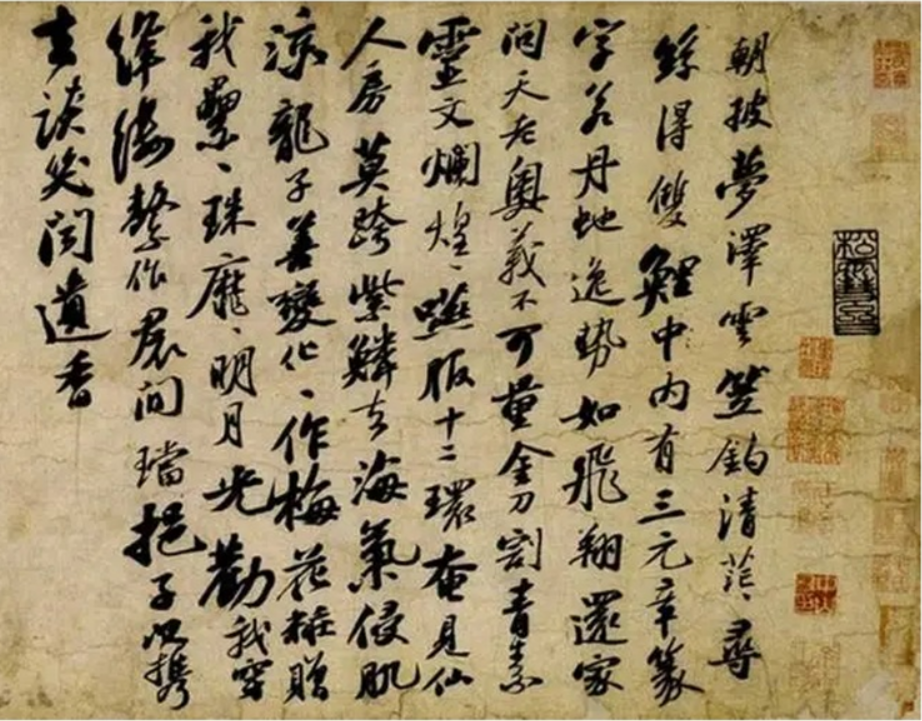 朝披夢澤雲笠釣清茫〻尋
絲得雙鯉中内有三元章篆
字若丹虵逸勢如飛翔還家
問天老奧義不可量金刀割青素
靈文爛煌〻嚥服十二環奄見仙
人房莫跨紫鱗去海氣侵肌
涼龍子善變化〻作梅花糚贈
我纍〻珠靡〻明月光勸我穿
絳縷繫作裙間璫挹子以攜
去談笑聞遺香